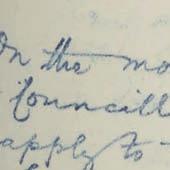 On the mo
Councill
apply to